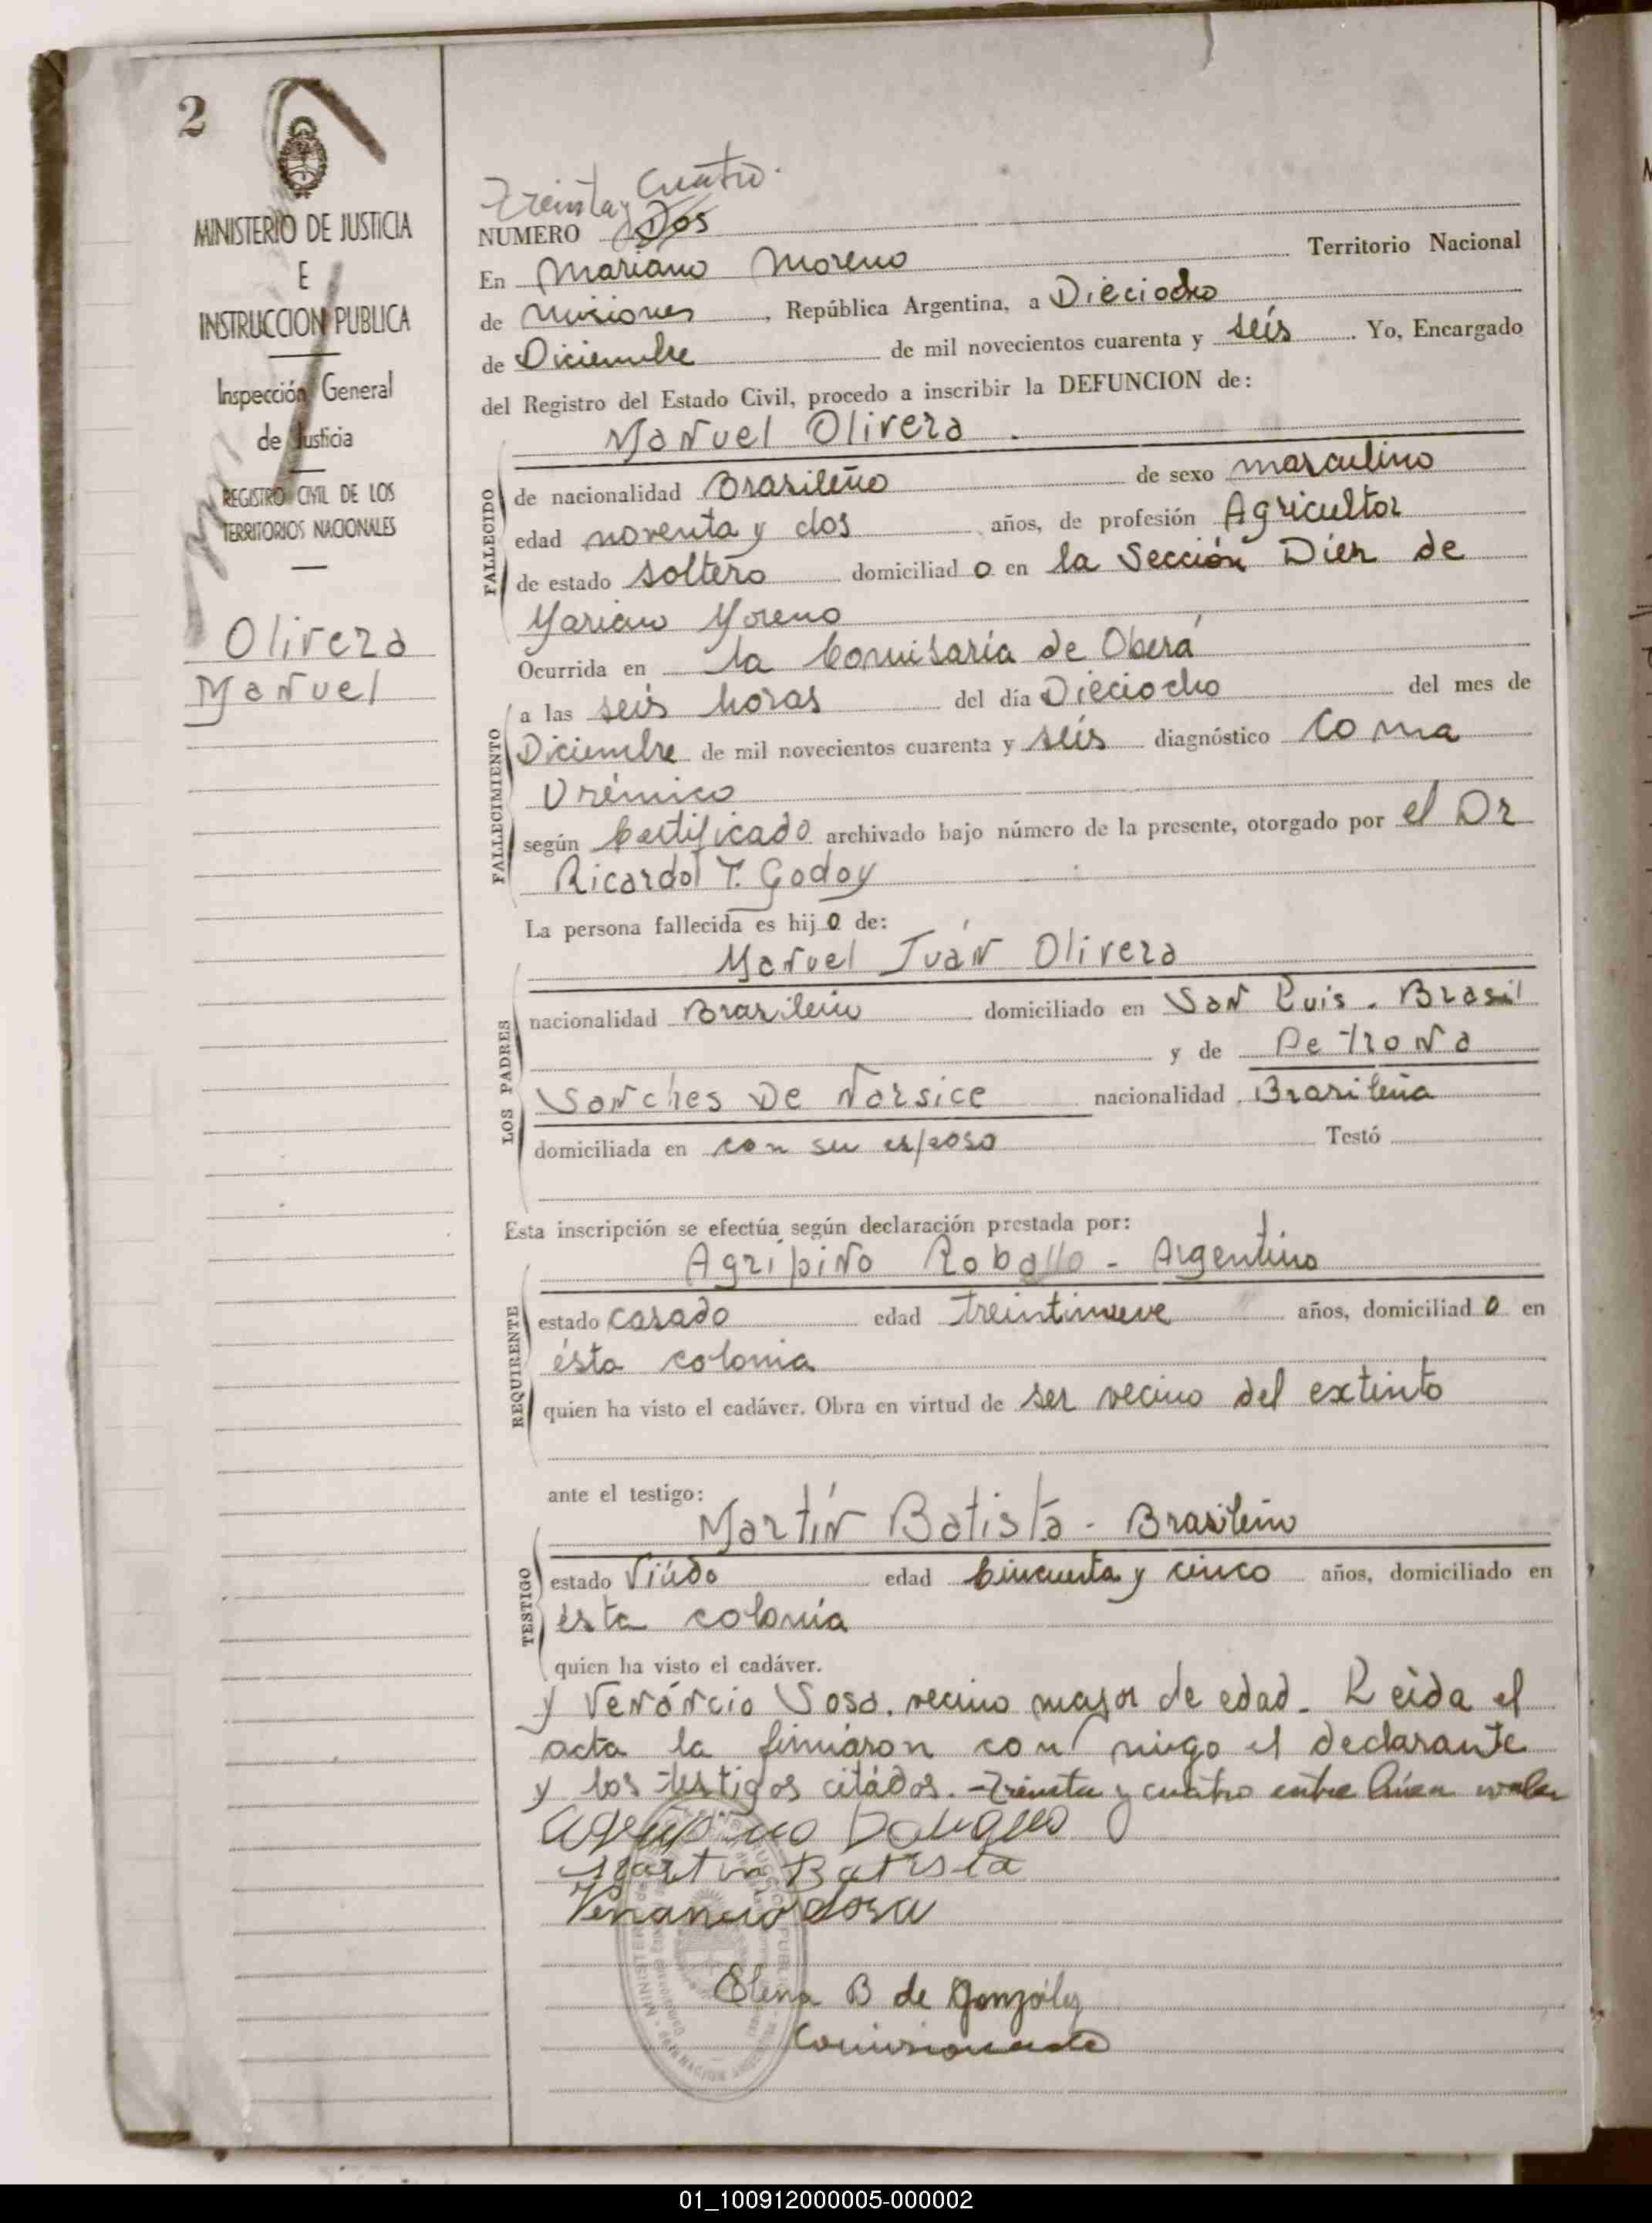 2
MINISTERIO DE JUSTICIA
E
INSTRUCCION PUBLICA
Inspección General
de Justicia
REGISTRO CIVIL DE LOS
TERRITORIOS NACIONALES
Olivera
Manuel
Treinta y Cuatro.
NUMERO Dos
En Mariano Moreno Territorio Nacional
de Misiones, República Argentina, a Dieciocho
de Diciembre de mil novecientos cuarenta y seís. Yo, Encargado
del Registro del Estado Civil, procedo a inscribir la DEFUNCION de:
FALLECIDO
Manuel Olivera.
de nacionalidad Brasileño de sexo masculino
edad noventa y dos años, de profesión Agricultor
de estado soltero domiciliado en la Sección Diez de
Mariano Moreno
Ocurrida en la Comisaría de Oberá
FALLECIMIENTO
a las seis horas del día Dieciocho del mes de
Diciembre de mil novecientos cuarenta y seis diagnóstico coma
Urémico
según Certificado archivado bajo número de la presente, otorgado por el Dr
Ricardo T. Godoy
La persona fallecida es hijo de:
LOS PADRES
Manuel Juán Olivera
nacionalidad Brasileño domiciliado en San Luis - Brasil
y de Petrona
Sanches De Narsice nacionalidad Brasileña
domiciliada en con su esposo Testó
Esta inscripción se efectúa según declaración prestada por:
REQUIRENTE
Agripino Roballo - Argentino
estado casado edad treintinueve años, domiciliado en
ésta colonia
quien ha visto el cadáver. Obra en virtud de ser vecino del extinto
ante el testigo:
TESTIGO
Martín Batista - Brasileño
estado Viúdo edad Cincuenta y cinco años, domiciliado en
ésta colonia
quien ha visto el cadáver.
y Venáncio Sosa, vecino mayor de edad. Leida el
acta la firmáron con migo el declarante
y los testigos citádos. - Treinta y cuatro entre línea vale
Agripino Roballo
Martin Batista
Venancio Sosa
Elena B de González
Comisionada
01_100912000005-000002